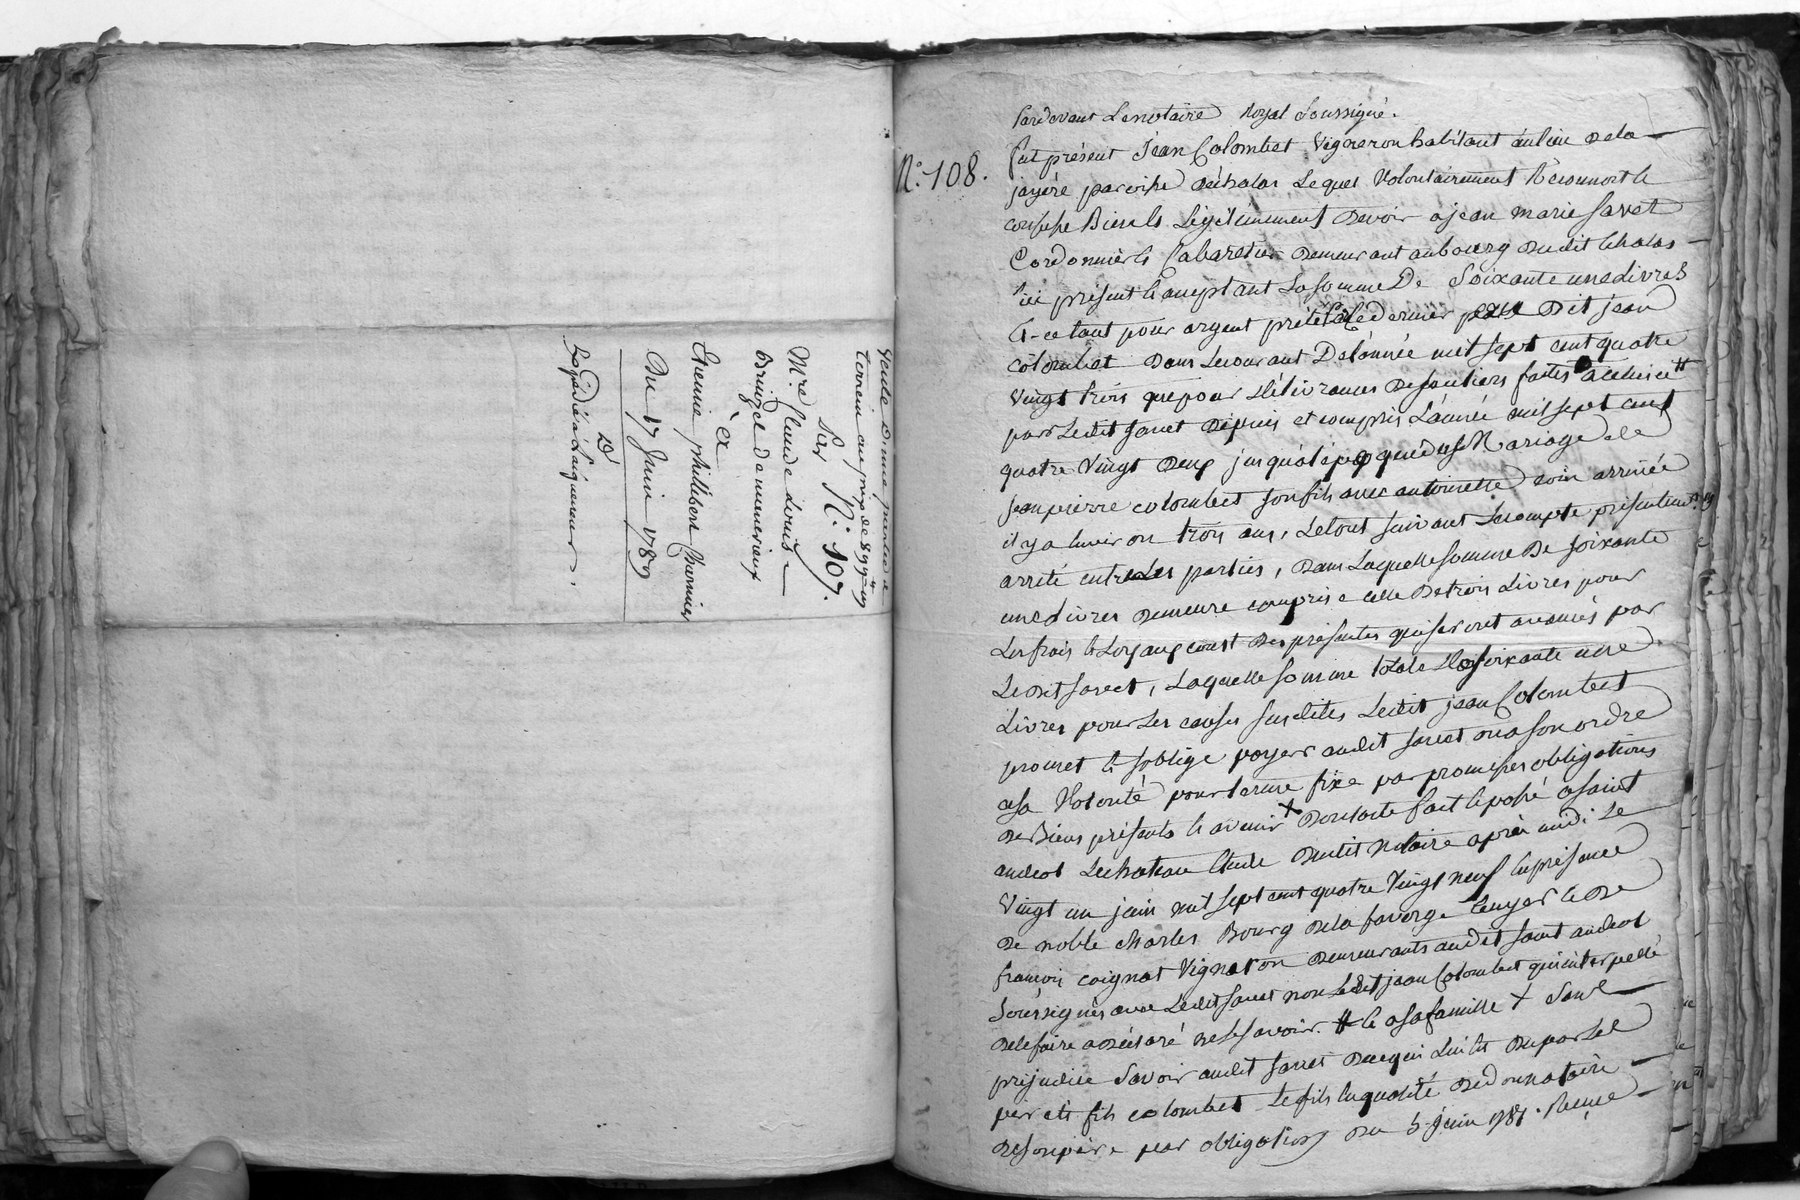 Vente d'une partie de
terrein au prix de 899₶ 19
Par N.° 107.
Mre Claude Louis
Bruizet de maneurieux
à
Etienne phillibert Charmier
Du 17 Juin 1789
D
Expedié a L'aiguereur.
N.° 108.
Pardevant Le notaire Royal Soussigné.
fut présent Jean Colombet Vigneron habitant au lieu de la
jayere paroisse d'échalas Lequel Volontairement Reconnoit &
confesse Bien & Légitimement devoir a jean marie favet
Cordonnier & Cabaretier demeurant au bourg dudit Echalas
ici présent & aceptant La somme De Soixante une livres
Et ce tant pour argent prété audit jean
colombet dans Le courant De L'année mil sept cent quatre
Vingt trois que pour délivrances de souliers faites a celui ci #
par Ledit favet depuis et compris L'année mil sept cent
quatre Vingt deux jusqu'à l'epoque du Mariage de
jean pierre colombet son fils avec antoinette arrivée
il y a Environ trois ans, Le tout suivant Le compte présentement
arrété entre Les parties, dans Laquelle somme De soixante
une Livres demeure comprise celle De trois Livres pour
Les frais & Loyaux cout des présentes qui seront avancés par
Ledit favet, Laquelle somme totale De soixante une
Livres pour Les causes susdites Ledit jean Colombet
promet & s'oblige payer audit favet ou a son ordre
a sa Volonté pour terme fixe par promesses obligations
de Biens présents & avenir X Dont acte fait & passé a saint
andeol Le chateau Etude dudit Notaire après midi Le
Vingt un juin mil sept cent quatre Vingt neuf En présence
De noble charles Bourg de la faverge Ecuyer & De
françois coignat Vigneron demeurants audit saint andeol
Soussignés avec Ledit favet non Ledit jean Colombet qui interpellé
de le faire a déclaré ne le savoir. # & a sa famille X Sans
préjudice Savoir audit favet de ce qui Lui est du par Les
per et fils colombet Le fils En qualité de donnataire
de son père par obligation du 5 juin 1787. Reçue